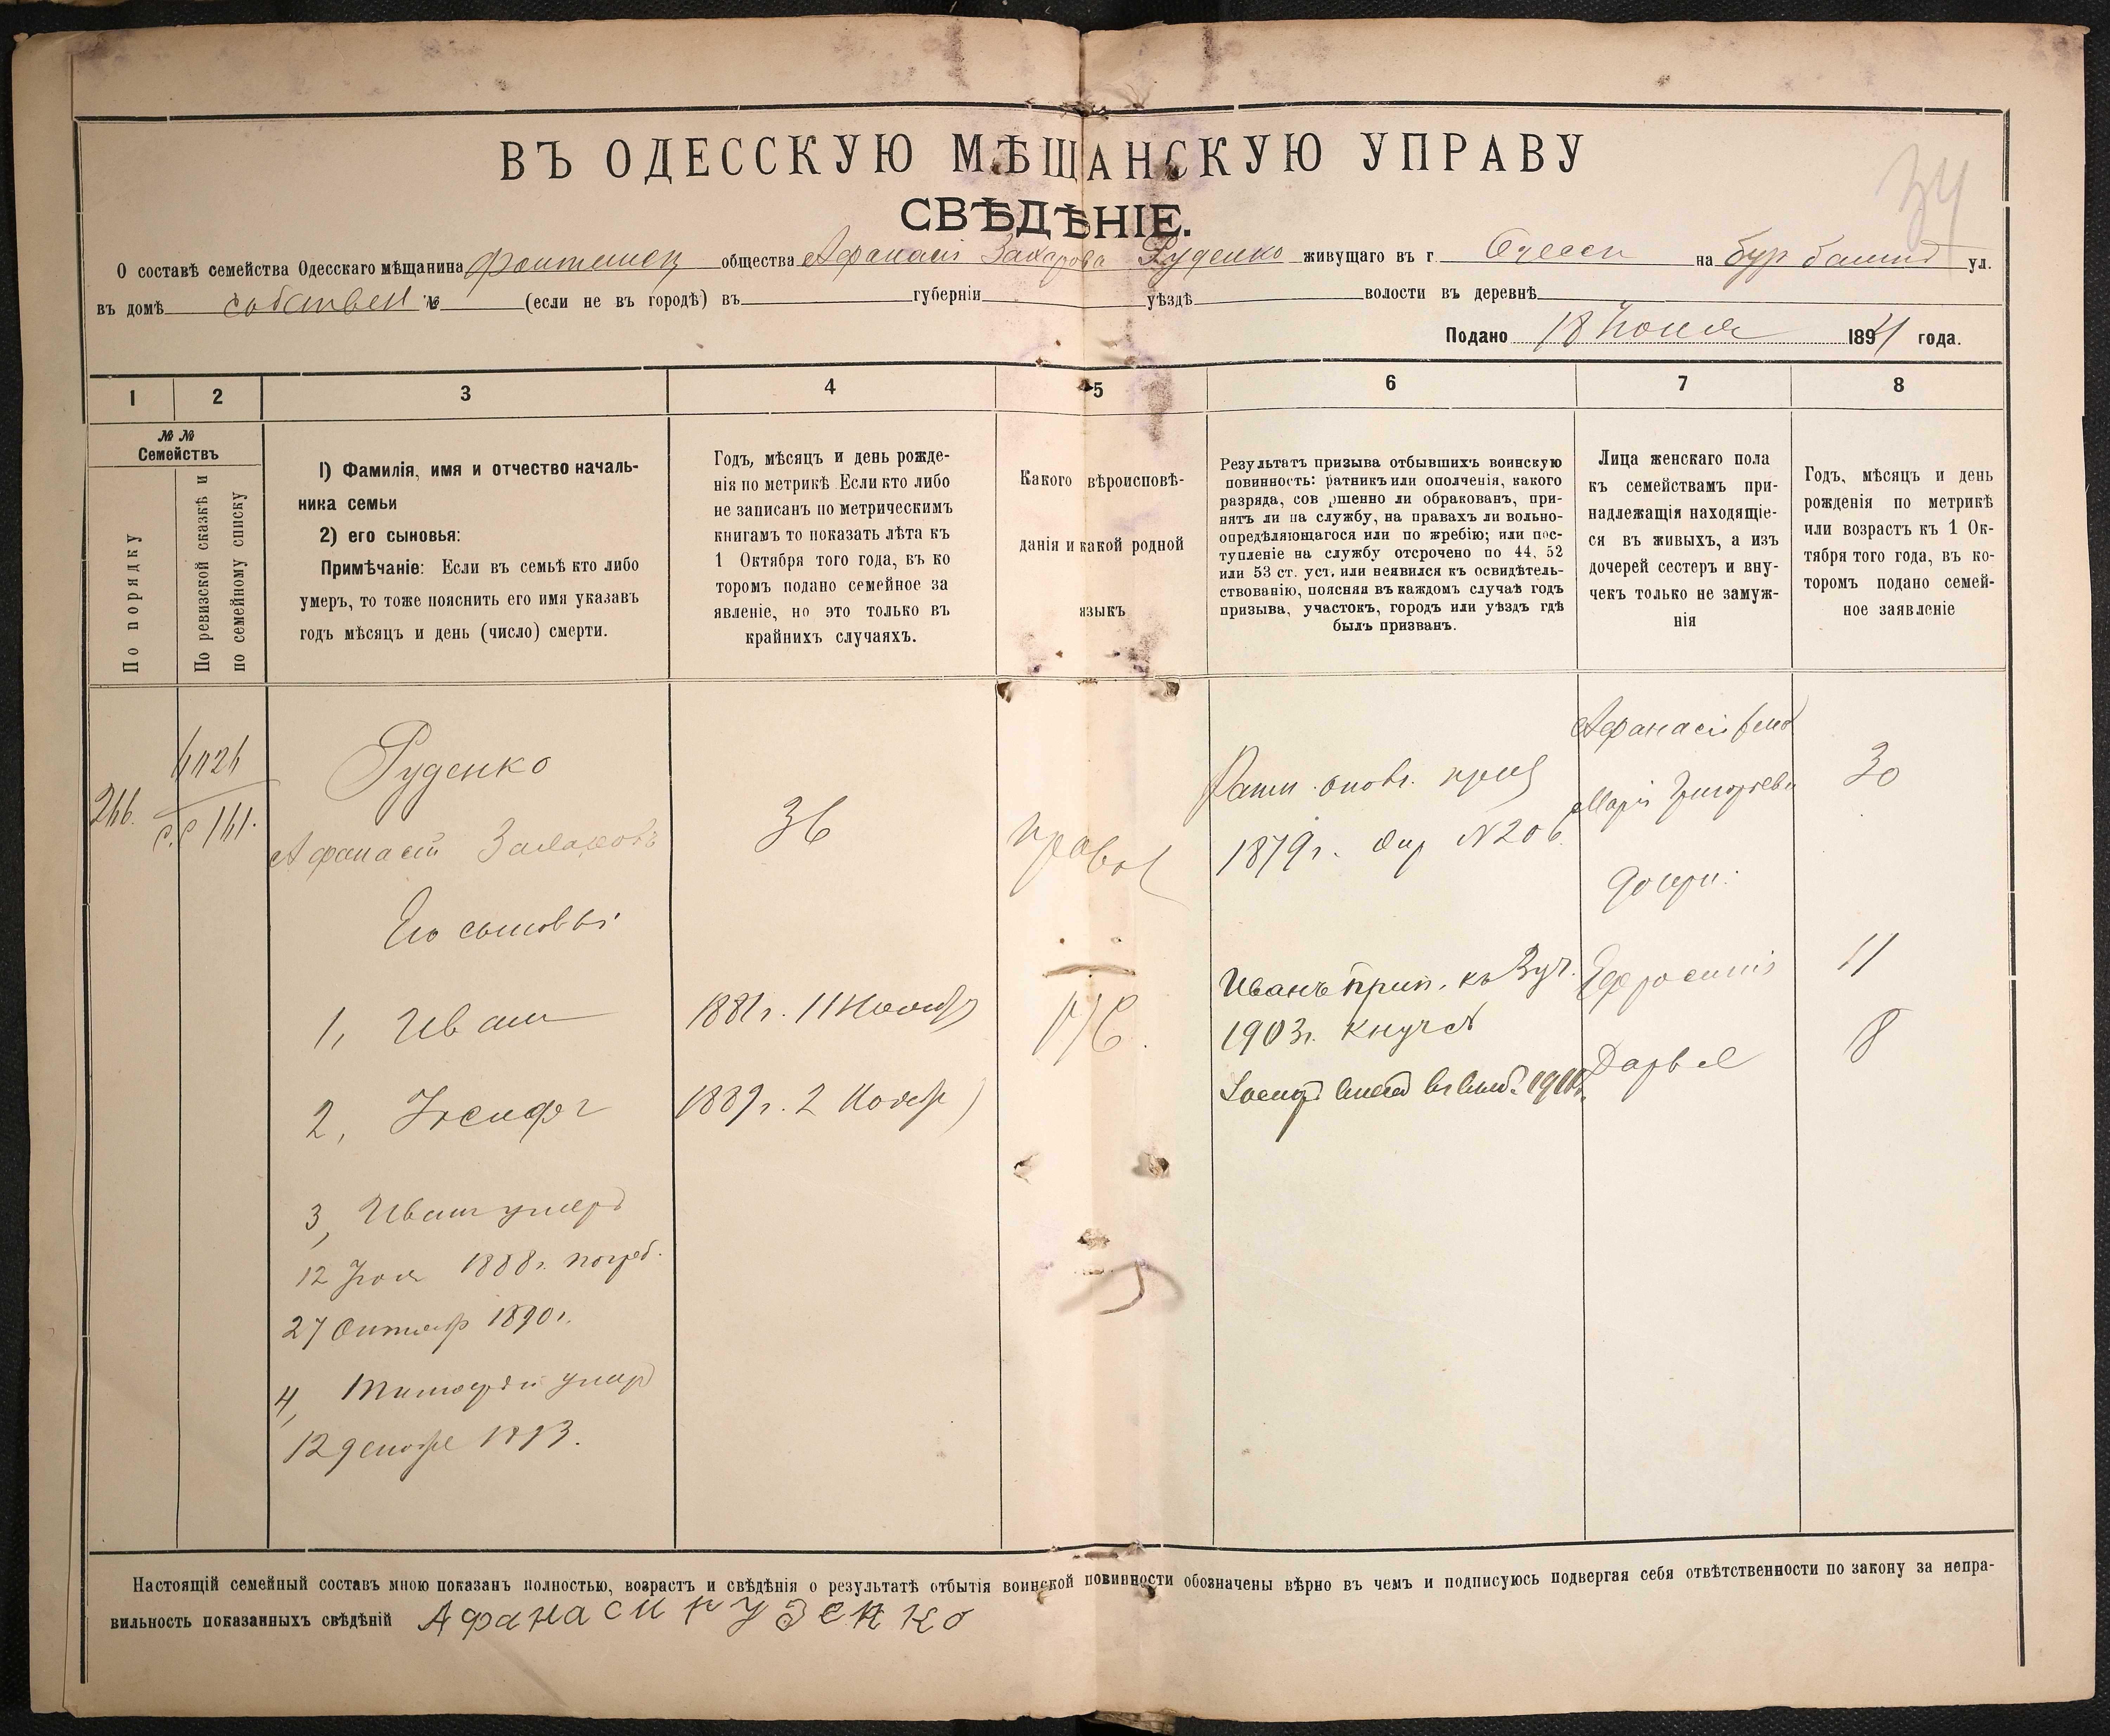 34
ВЪ ОДЕССКУЮ МѢЩАНСКУЮ УПРАВУ
СВѢДѢНІЕ.
О составѣ семейства Одесскаго мѣщанина общества Афанасія Захарова Руденко живущаго въ г Одессы на бур ул.
въ домѣ собствен № (если не въ городѣ) въ губерніи уѣздѣ волости въ деревнѣ
Подано 18 1894 года.
1 2 3 4 5 6 7 8
№ №
Семействъ
По порядку
По ревизской сказкѣ и
по семейному списку
1) Фамилія, имя и отчество началь-
ника семьи
2) его сыновья:
Примѣчаніе: Если въ семьѣ кто либо
умеръ, то тоже пояснить его имя указавъ
годъ мѣсяцъ и день (число) смерти.
Годъ, мѣсяцъ и день рожде-
нія по метрикѣ Если кто либо
не записанъ по метрическимъ
книгамъ то показать лѣта къ
1 Октября того года, въ ко
торомъ подано семейное за
явленіе, но это только въ
крайнихъ случаяхъ.
Какого вѣроисповѣ-
данія и какой родной
языкъ
Результатъ призыва отбывшихъ воинскую
повинность: ратникъ или ополченія, какого
разряда, сов ршенно ли обракованъ, при-
нятъ ли на службу, на правахъ ли вольно-
опредѣляющагося или по жребію; или пос-
тупленіе на службу отсрочено по 44, 52
или 53 ст. уст. или неявился къ освидѣтель-
ствованію, поясняя въ каждомъ случаѣ годъ
призыва, участокъ, городъ или уѣздъ гдѣ
былъ призванъ.
Лица женскаго пола
къ семействамъ при-
надлежащія находящіе-
ся въ живыхъ, а изъ
дочерей сестеръ и вну-
чекъ только не замуж-
нія
Годъ, мѣсяцъ и день
рожденія по метрикѣ
или возрастъ къ 1 Ок-
тября того года, въ ко-
торомъ подано семей-
ное заявленіе
266.
Руденко
Афанасій Захаровъ
36
правос
Ратн. опол. приз
1879 г. N 206
Афанасія жена
Марія Григорьева
30
Его сыновья:
дочери:
1, Иванъ
1881 г. 11 Ноября
рус.
Иванъ прип. къ 3 уч.
1903 г.
Ефросинія
11
2, Іосифъ
1889 г. 2 Ноября
Іосифъ 1910 г.
Дарья
8
3, Иванъ умеръ
12 1888 г.
27 Октября 1890 г.
4, Тимофей умеръ
12 декабря 1893.
Настоящій семейный составъ мною показанъ полностью, возрастъ и свѣдѣнія о результатѣ отбытія воинской повинности обозначены вѣрно въ чемъ и подписуюсь подвергая себя отвѣтственности по закону за непра-
вильность показанныхъ свѣдѣній Афанаси рузенко